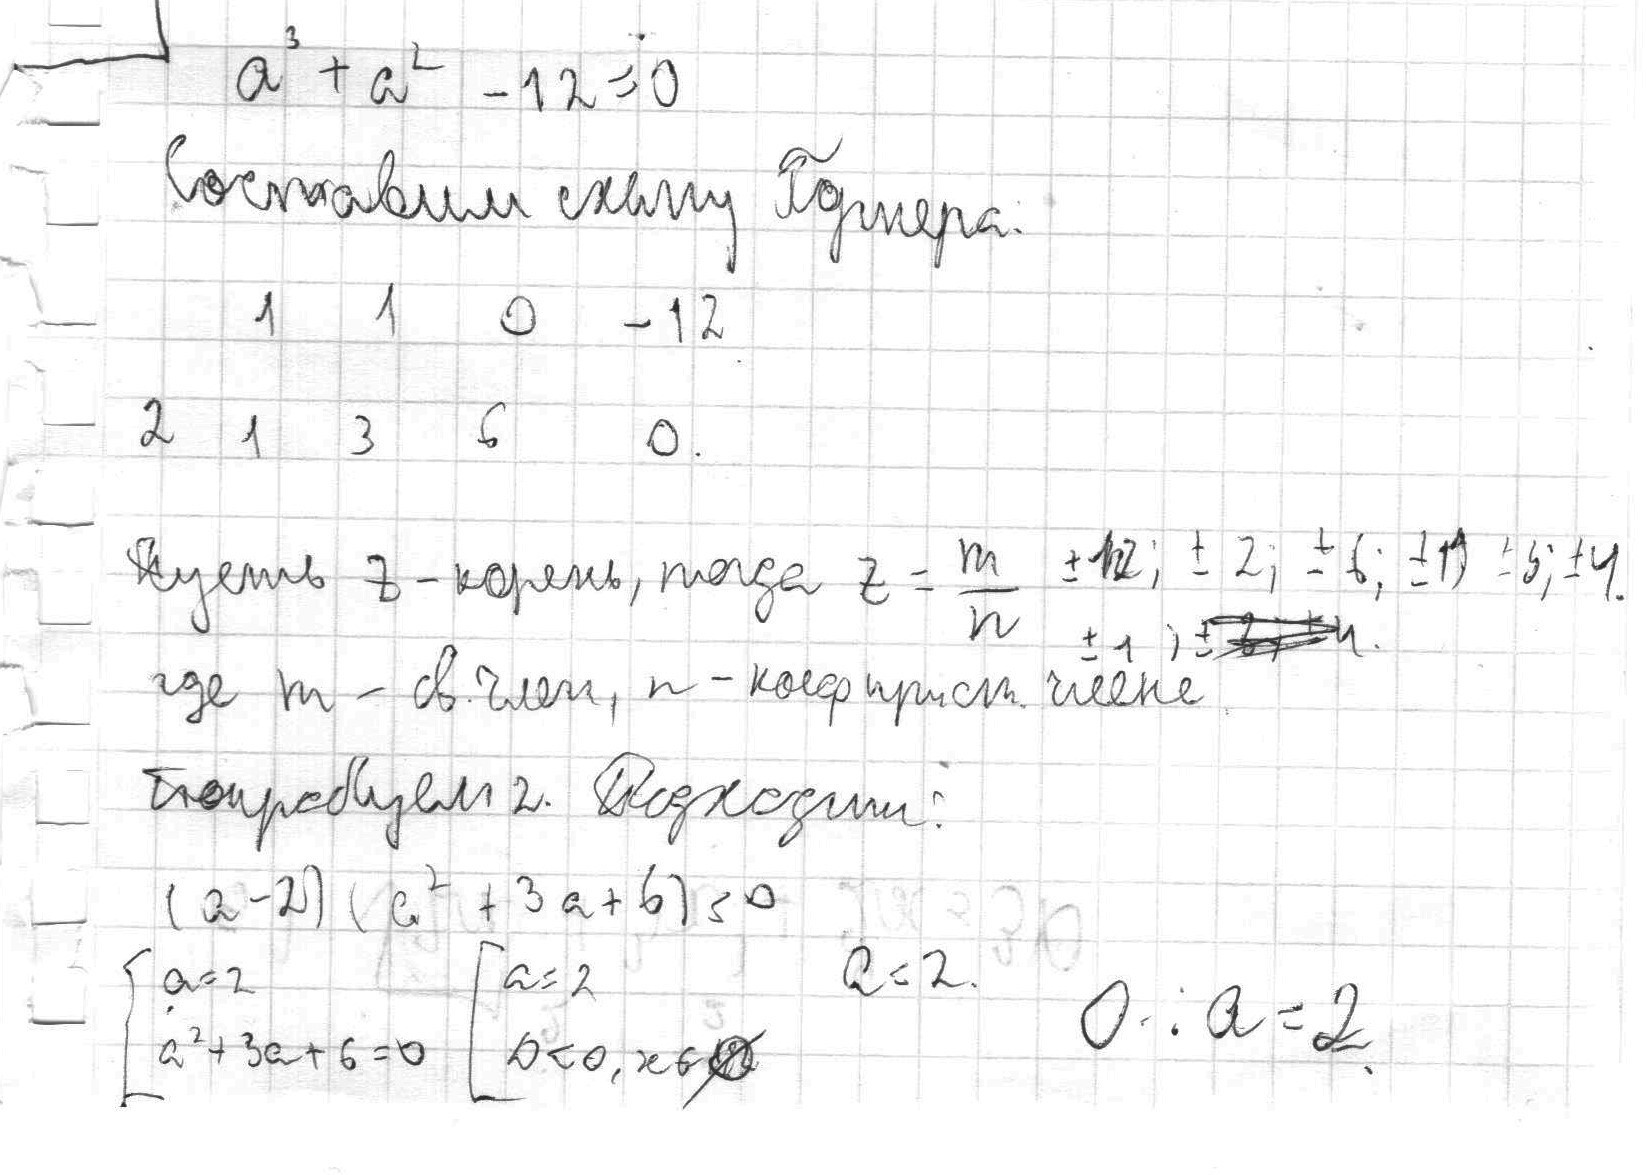 a³ + a² - 12 = 0
Составим схему Горнера:
1 1 0 -12
2 1 3 6 0.
Пусть z - корень, тогда z = m/n ±12; ±2; ±6; ±1; ±3; ±4.
±1; ±
где m - св. член, n - коэф при ст. члене
Попробуем 2. Подходит:
(a-2)(a² + 3a + 6) = 0
[a = 2 [a = 2 a = 2.
a² + 3a + 6 = 0 D < 0, x ∈ ∅
О.: a = 2.